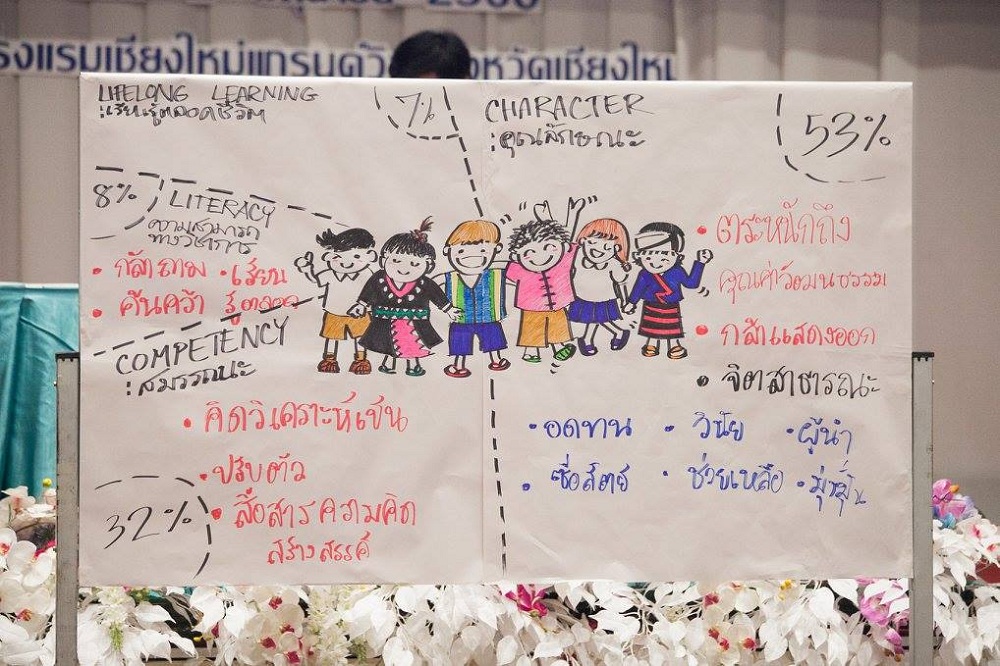 2560
โรงแรมเชียงใหม่แกรนด์วิว จังหวัดเชียงใหม่
LIFELONG LEARNING
: เรียนรู้ตลอดชีวิต
7%
CHARACTER
: คุณลักษณะ
53%
8%
LITERACY
ความสามารถ
ทางวิชาการ
• กล้าถาม • เรียน
• ค้นคว้า รู้ตลอด
COMPETENCY
: สมรรถนะ
• คิดวิเคราะห์เป็น
• ปรับตัว
• สื่อสารความคิด
สร้างสรรค์
32%
• ตระหนักถึง
คุณค่าวัฒนธรรม
• กล้าแสดงออก
• จิตสาธารณะ
• อดทน • วินัย • ผู้นำ
• ซื่อสัตย์ • ช่วยเหลือ • มุ่งมั่น